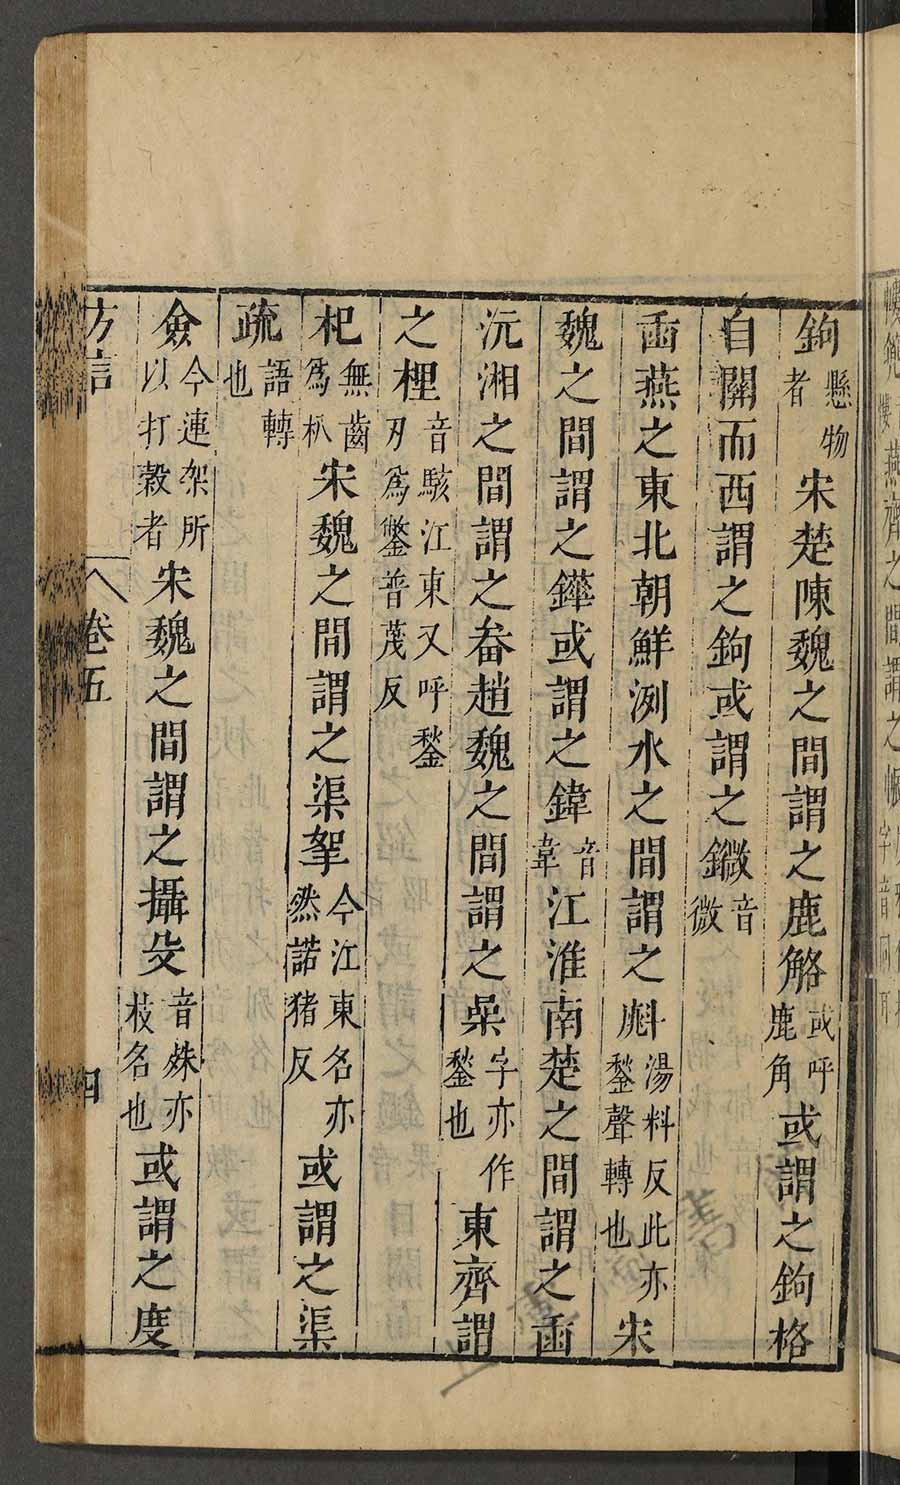 鉤懸物者宋楚陳魏之間謂之鹿觡或呼鹿角或謂之鉤格
自關而西謂之鉤或謂之鐖音微
臿燕之東北朝鮮洌水之間謂之㪺湯料反此亦鍫聲轉也宋
魏之間謂之鏵或謂之鍏音韋江淮南楚之間謂之臿
沅湘之間謂之畚趙魏之間謂之喿字亦作鍫也東齊謂
之梩音駭江東又呼鍫刃爲鐅普蔑反
杷無齒爲朳宋魏之間謂之渠挐今江東名亦然諾豬反或謂之渠
疏語轉也
僉今連架所以打穀者宋魏之間謂之攝殳音殊亦杖名也或謂之度
方言
卷五
四